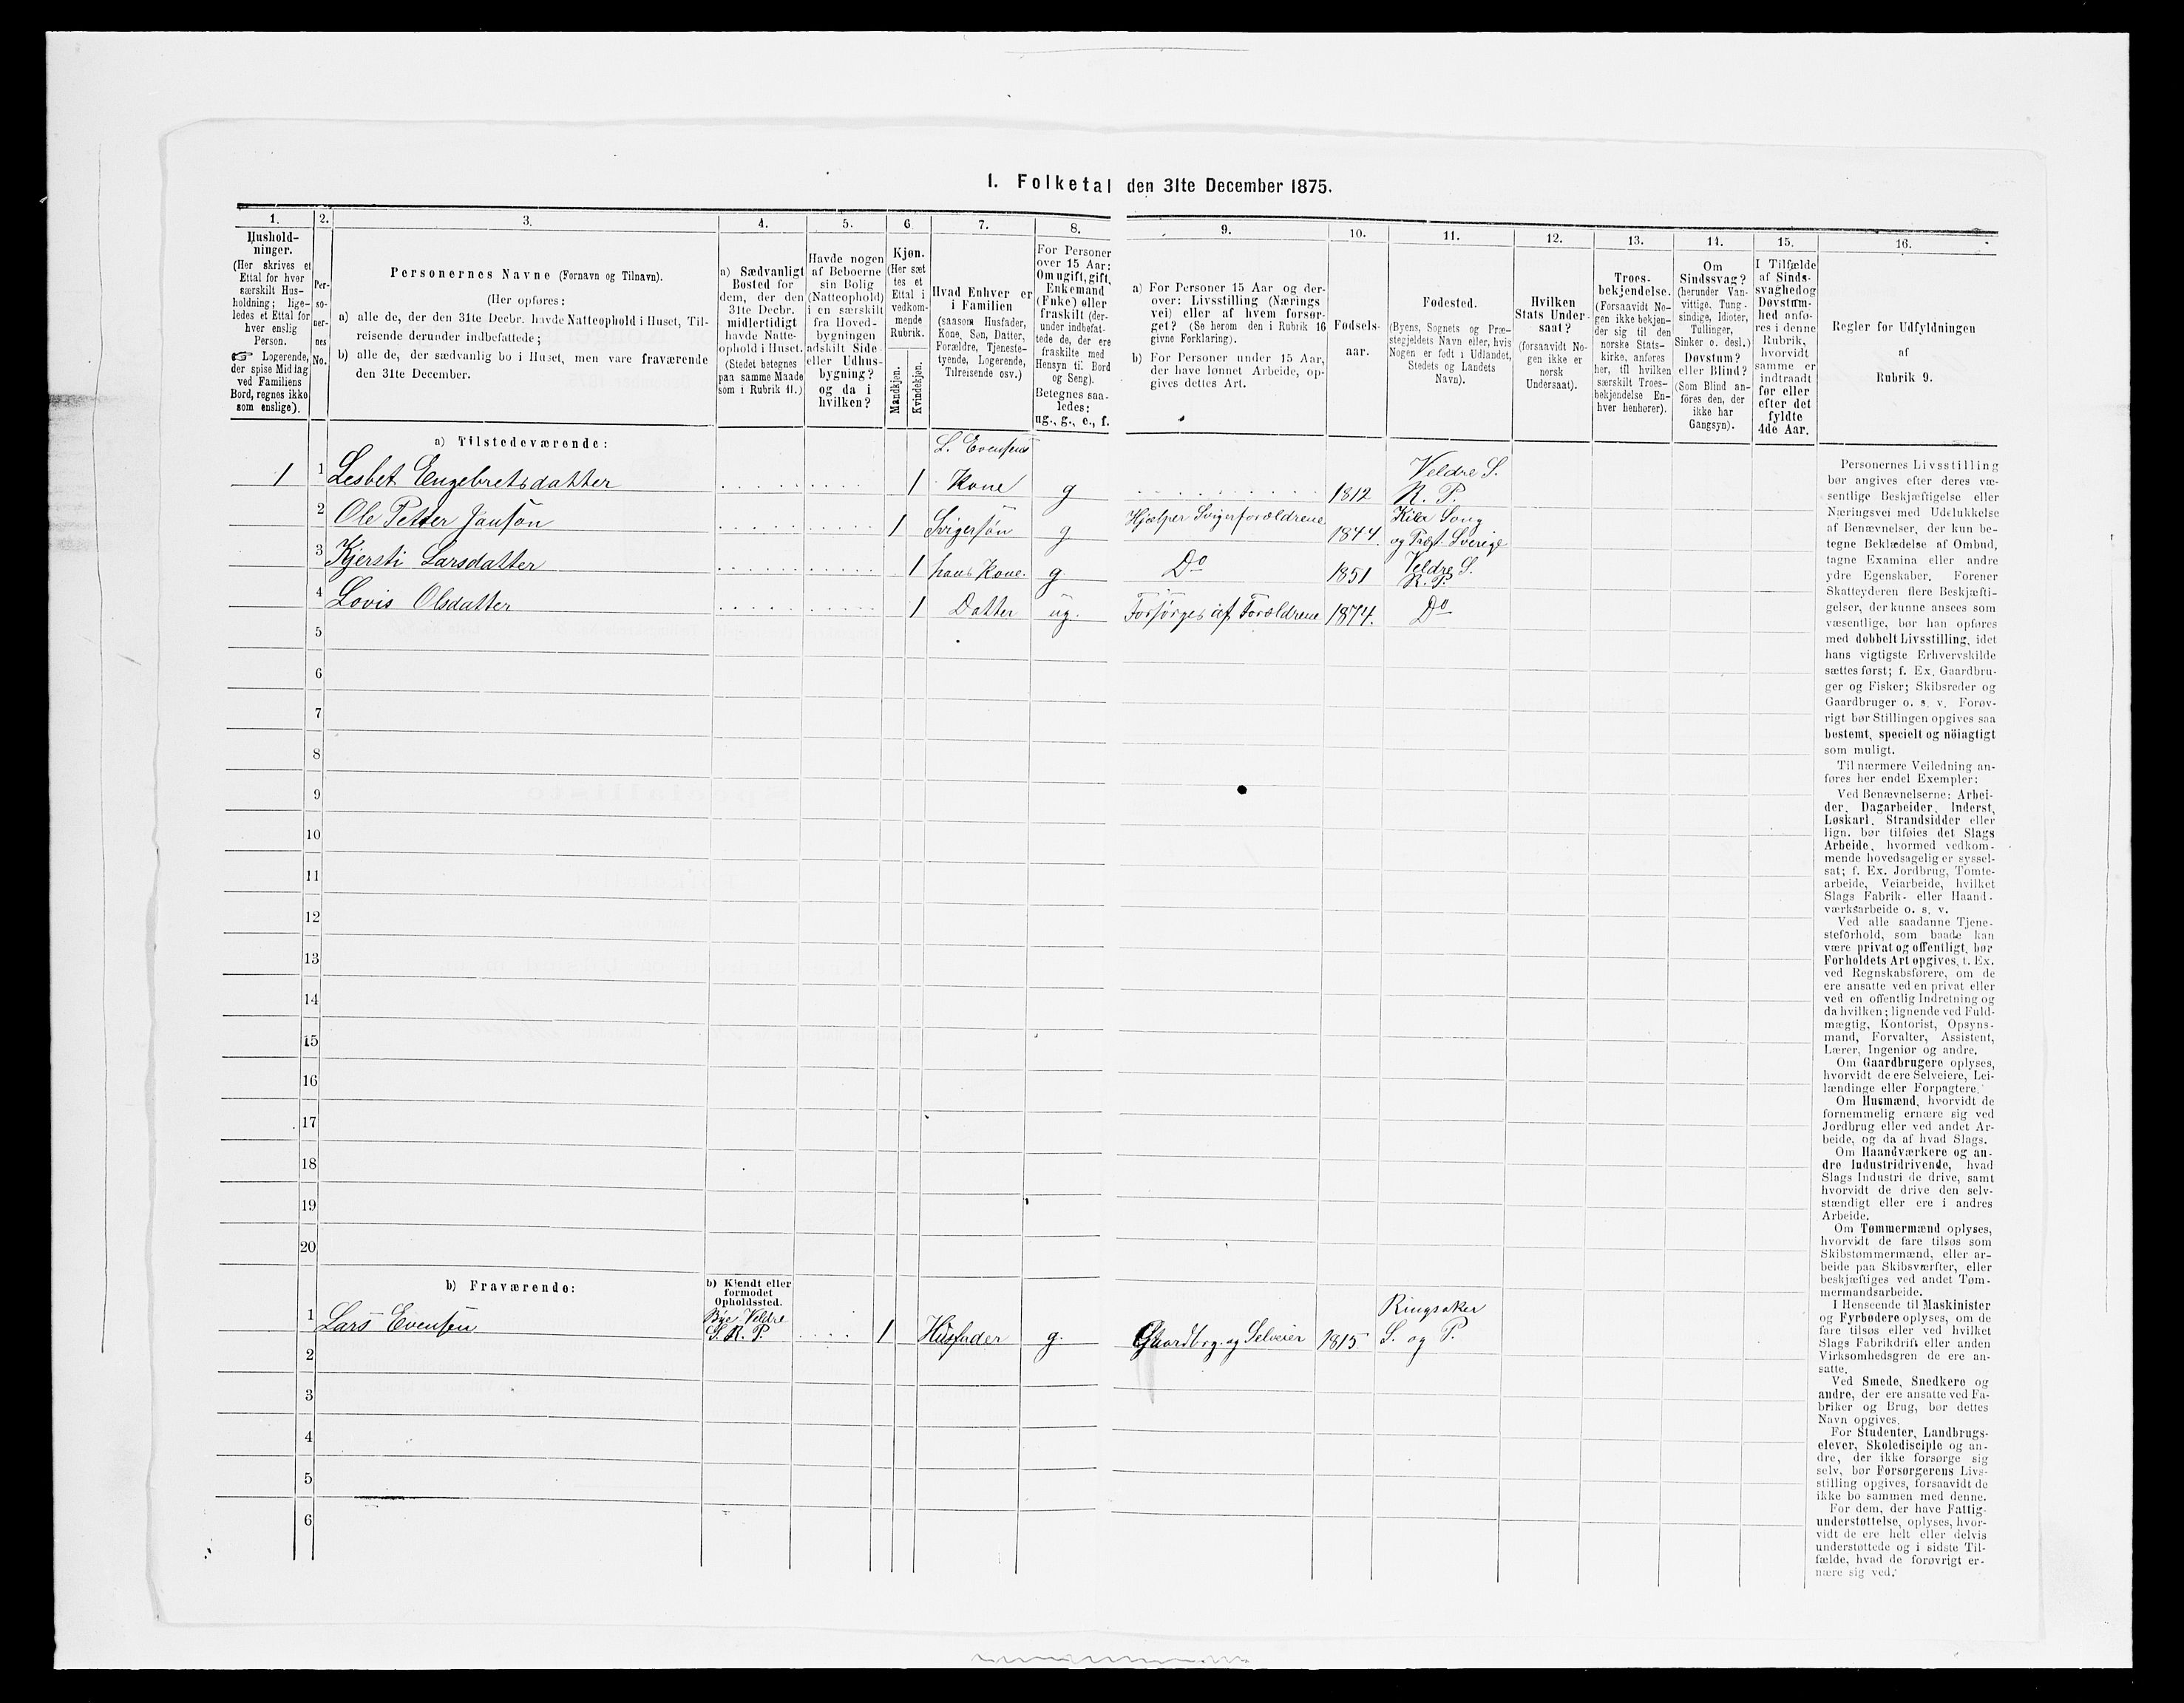 1. Folketal den 31te December 1875.
1.
Hushold-
ninger.
(Her skrives et
Ettal for hver
særskilt Hus-
holdning; lige-
ledes et Ettal for
hver enslig
Person.
☞ Logerende,
der spise Middag
ved Familiens
Bord, regnes ikke
som enslige).
2.
Per-
so-
ner-
nes
No.
3.
Personernes Navne (Fornavn og Tilnavn).
(Her opføres:
a) alle de, der den 31te Decbr. havde Natteophold i Huset, Til-
reisende derunder indbefattede;
b) alle de, der sædvanlig bo i Huset, men vare fraværende
den 31te December.
4.
a) Sædvanligt
Bosted for
dem, der den
31te Decbr.
midlertidigt
havde Natte-
ophold i Huset.
(Stedet betegnes
paa samme Maade
som i Rubrik 11.)
5.
Havde nogen
af Beboerne
sin Bolig
(Natteophold)
i en særskilt
fra Hoved-
bygningen
adskilt Side-
eller Udhus-
bygning?
og da i
hvilken?
6.
Kjøn.
(Her sæt
tes et
Ettal i
vedkom-
mende
Rubrik.
Mandkjøn.
Kvindekjøn.
7.
Hvad Enhver er
i Familien
(saasom Husfader,
Kone, Søn, Datter,
Forældre, Tjeneste-
tyende, Logerende,
Tilreisende osv.)
8.
For Personer
over 15 Aar:
Om ugift, gift,
Enkemand
(Enke) eller
fraskilt (der-
under indbefat-
tede de, der ere
fraskilte med
Hensyn til Bord
og Seng).
Betegnes saa-
ledes:
ug., g., e., f.
9.
a) For Personer 15 Aar og der-
over: Livsstilling (Nærings
vei) eller af hvem forsør-
get? (Se herom den i Rubrik 16
givne Forklaring).
b) For Personer under 15 Aar,
der have lønnet Arbeide, op-
gives dettes Art.
10.
Fødsels-
aar.
11.
Fødested.
(Byens, Sognets og Præ-
stegjeldets Navn eller, hvis
Nogen er født i Udlandet,
Stedets og Landets
Navn).
12.
Hvilken
Stats Under-
saat?
(forsaavidt No-
gen ikke er
norsk
Undersaat).
13.
Troes-
bekjendelse.
(Forsaavidt No-
gen ikke bekjen-
der sig til den
norske Stats-
kirke, anføres
her, til hvilken
særskilt Troes-
bekjendelse En-
hver henhører).
14.
Om
Sindssvag?
(herunder Van-
vittige, Tung-
sindige, Idioter,
Tullinger,
Sinker o. desl.)
Døvstum?
eller Blind?
(Som Blind an-
føres den, der
ikke har
Gangsyn).
15.
I Tilfælde
af Sinds-
svaghed og
Døvstum-
hed anfø-
res i denne
Rubrik,
hvorvidt
samme er
indtraadt
før eller
efter det
fyldte
4de Aar.
16.
Regler for Udfyldningen
af
Rubrik 9.
a) Tilstedeværende:
L. Evensens
1 1 Lesbet Engebretsdatter 1 Kone g 1812 Veldre S.
R. P.
2 Ole Petter Janson 1 Svigersøn g Hjælper Svigerforældrene 1844. Kila Song
og Præst. Sverige
3 Kjersti Larsdatter 1 hans Kone. g Do 1851 Veldre S.
R. P.
4 Lovis Olsdatter 1 Datter ug. Forsørges af Forældrene 1874. Do
5
6
7
8
9
10
11
12
13
14
15
16
17
18
19
20
b) Fraværende:
b) Kjendt eller
formodet
Opholdssted.
1 Lars Evensen Bye Veldre
S. R. P. 1 Husfader g. Gaardbrg. og Selveier 1815 Ringsaker
S. og P.
2
3
4
5
6
Personernes Livsstilling
bør angives efter deres væ-
sentlige Beskjæftigelse eller
Næringsvei med Udelukkelse
af Benævnelser, der kun be-
tegne Beklædelse af Ombud,
tagne Examina eller andre
ydre Egenskaber. Forener
Skatteyderen flere Beskjæfti-
gelser, der kunne ansees som
væsentlige, bør han opføres
med dobbelt Livsstilling, idet
hans vigtigste Erhvervskilde
sættes først; f. Ex. Gaardbru-
ger og Fisker; Skibsreder og
Gaardbruger o. s. v. Forøv-
rigt bør Stillingen opgives saa
bestemt, specielt og nöiagtigt
som muligt.
Til nærmere Veiledning an-
føres her endel Exempler:
Ved Benævnelserne: Arbei-
der, Dagarbeider, Inderst,
Løskarl, Strandsidder eller
lign. bør tilføies det Slags
Arbeide, hvormed vedkom-
mende hovedsagelig er syssel-
sat; f. Ex. Jordbrug, Tomte-
arbeide, Veiarbeide, hvilket
Slags Fabrik- eller Haand-
værksarbeide o. s. v.
Ved alle saadanne Tjene-
steforhold, som baade kan
være privat og offentligt, bør
Forholdets Art opgives, f. Ex.
ved Regnskabsførere, om de
ere ansatte ved en privat eller
ved en offentlig Indretning og
da hvilken; lignende ved Fuld-
mægtig, Kontorist, Opsyns-
mand, Forvalter, Assistent,
Lærer, Ingeniør og andre.
Om Gaardbrugere oplyses,
hvorvidt de ere Selveiere, Lei-
lændinge eller Forpagtere.
Om Husmænd, hvorvidt de
fornemmelig ernære sig ved
Jordbrug eller ved andet Ar-
beide, og da af hvad Slags.
Om Haandværkere og an-
dre Industridrivende, hvad
Slags Industri de drive, samt
hvorvidt de drive den selv-
stændigt eller ere i andres
Arbeide.
Om Tømmermænd oplyses,
hvorvidt de fare tilsøs som
Skibstømmermænd, eller ar-
beide paa Skibsværfter, eller
beskjæftiges ved andet Tøm-
mermandsarbeide.
I Henseende til Maskinister
og Fyrbødere oplyses, om de
fare tilsøs eller ved hvilket
Slags Fabrikdrift eller anden
Virksomhedsgren de ere an-
satte.
Ved Smede, Snedkere og
andre, der ere ansatte ved Fa-
briker og Brug, bør dettes
Navn opgives.
For Studenter, Landbrugs-
elever, Skoledisciple og an-
dre, der ikke forsørge sig
selv, bør Forsørgerens Livs-
stilling opgives, forsaavidt de
ikke bo sammen med denne.
For dem, der have Fattig-
understøttelse, oplyses, hvor-
vidt de ere helt eller delvis
understøttede og i sidste Til-
fælde, hvad de forøvrigt er-
nære sig ved.